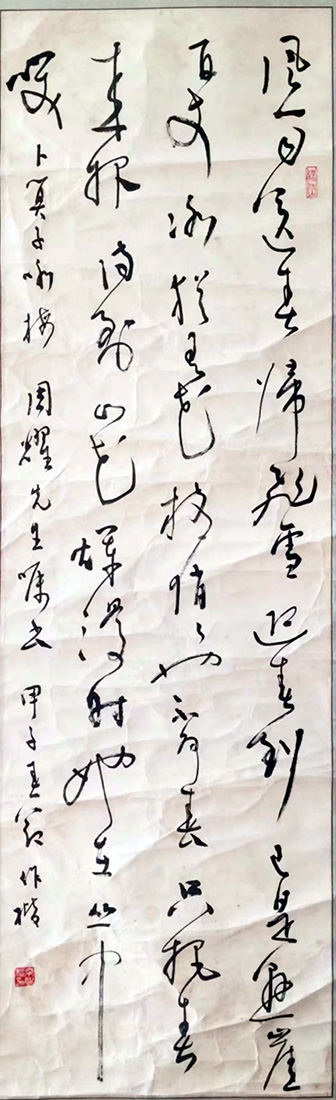 風雨送春歸飛雪迎春到已是懸崖
百丈冰猶有花枝俏々也不爭春只把春
來報待到山花爛漫時她在丛中
笑 卜算子咏梅 周耀先生嘱书 甲子 作楷